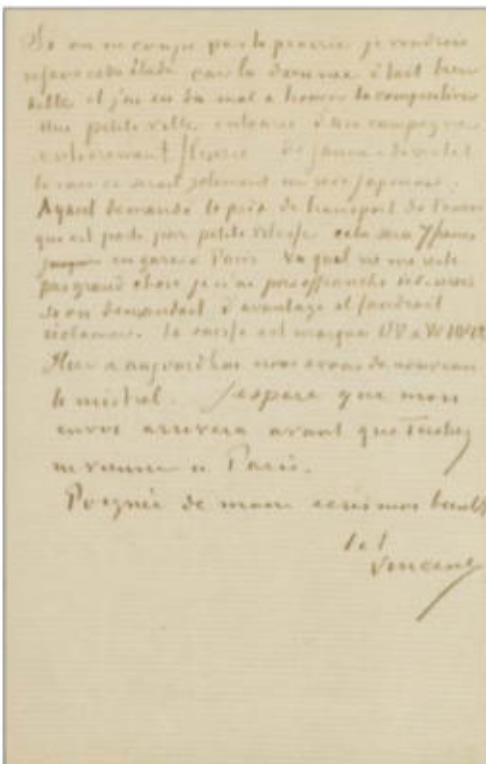 Si on ne coupe pas la prairie je voudrais
refaire cette étude car la donnée était bien
belle et j'ai eu du mal à trouver la composition
Une petite ville entourée d'une campagne
entièrement fleurie de jaune et de violet
ce serait joliment un rêve japonais.
Ayant demandé le prix de transport de l'envoi
qui est parti par petite vitesse cela sera 7 francs
en gare à Paris Vu qu'il ne me reste
pas grand chose je n'ai pas affranchi ici mais
si on demandait d'avantage il faudrait
réclamer. la caisse est marquée
Hier & aujourd'hui nous avons de nouveau
le mistral. J'espère que mon
envoi arrivera avant que Tersteeg
ne vienne à Paris.
Poignée de main écris moi bientôt
t. à t.
Vincent